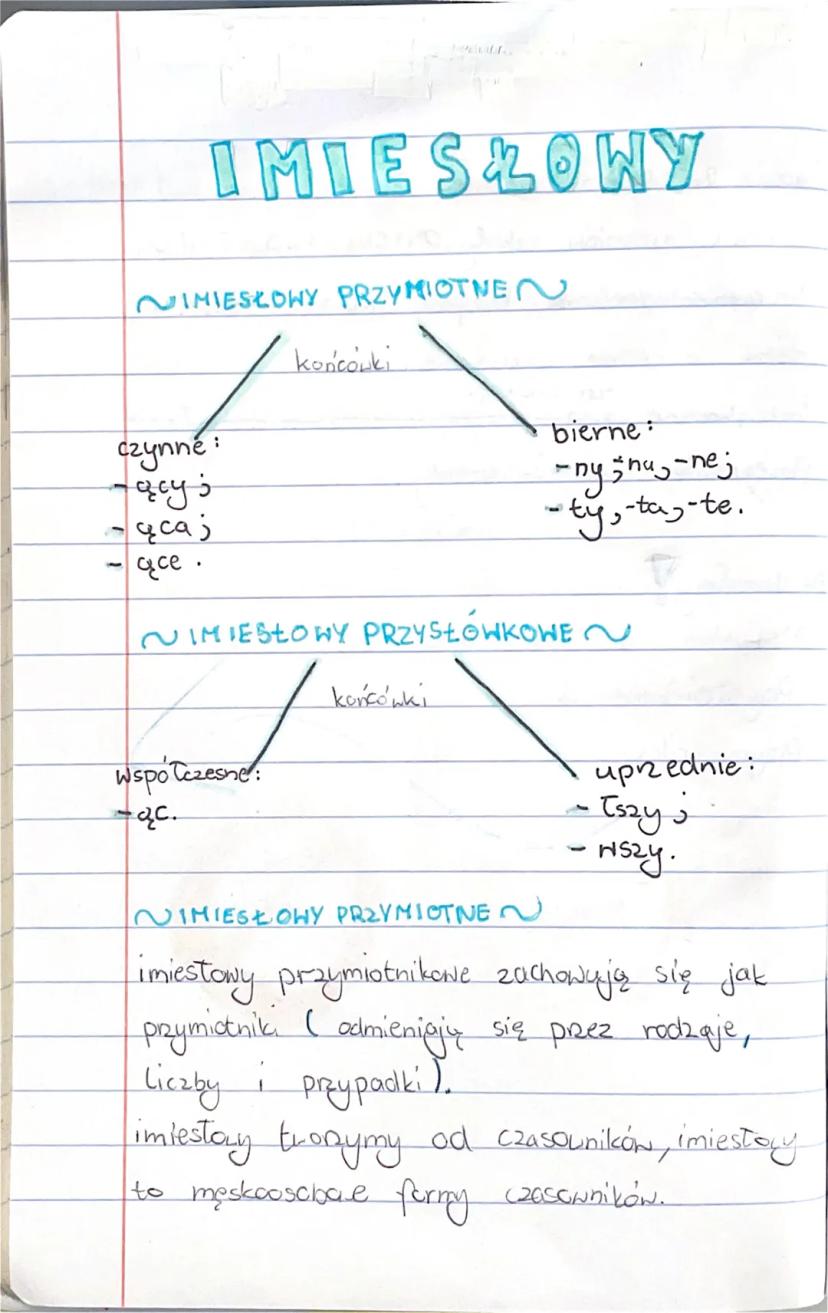 IMIESŁOWY
~IMIESŁOWY PRZYMIOTNE~
końcówki
czynne:
-ący;
-ąca;
-ące.
bierne:
-ny;-na,-ne;
-ty,-ta,-te.
~IMIESŁOWY PRZYSŁÓWKOWE~
końcówki
współczesne:
-ąc.
uprzednie:
-łszy;
-wszy.
~IMIESŁOWY PRZYMIOTNE~
imiesłowy przymiotnikowe zachowują się jak
przymiotniki (odmieniają się przez rodzaje,
liczby i przypadki).
imiesłowy tworzymy od czasowników, imiesłowy
to męskoosobowe formy czasowników.